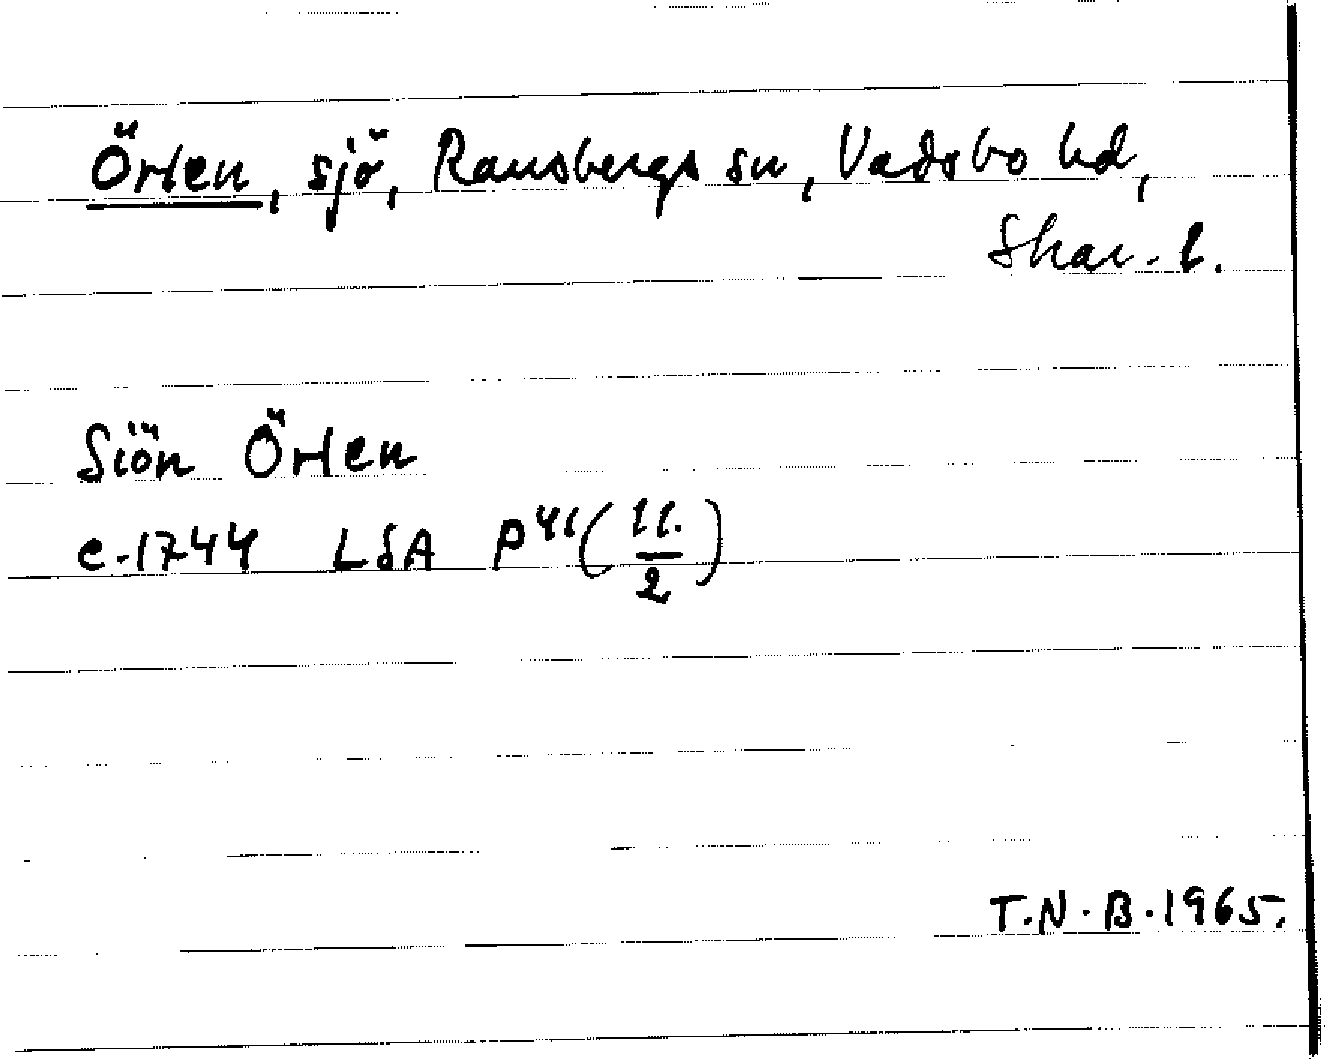 Örlen, sjö, Ransbergs sn, Vadsbo hd,
Skar. l.
Siön Örlen
c. 1744 LSA P 41 (11./2)
T.N.B. 1965.